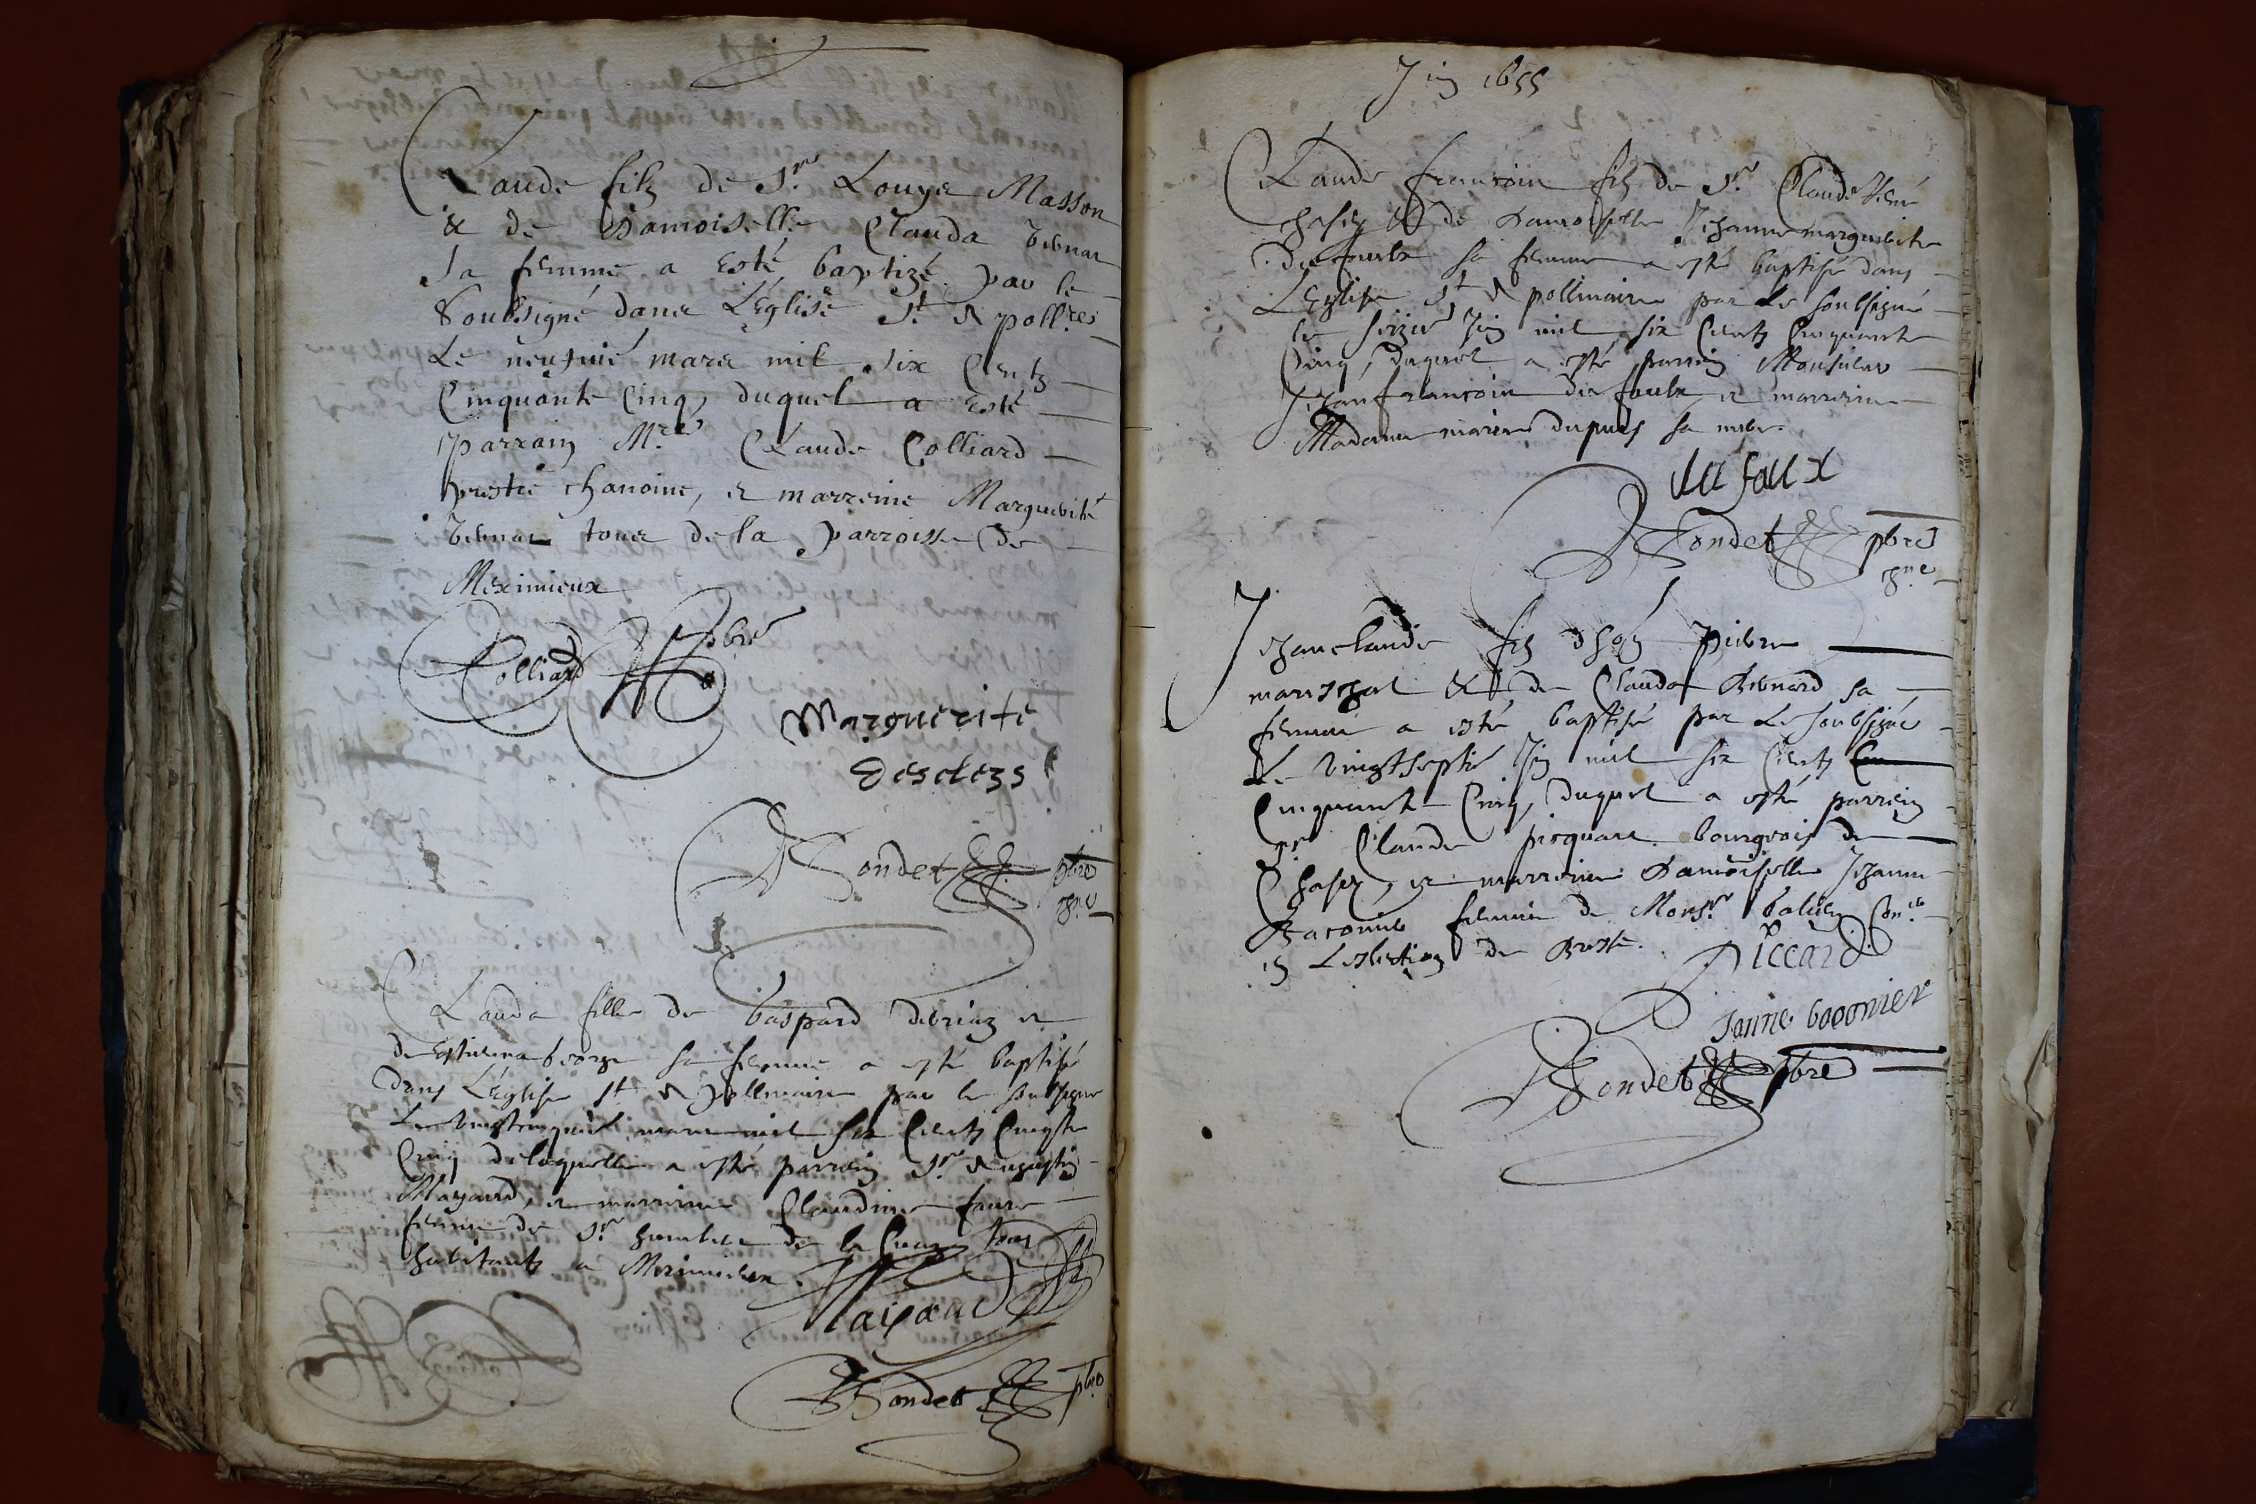 Claude filz de Sr Louys Masson
& de Damoiselle Clauda
sa femme a esté baptizé par le
soubsigné dans L'Eglise St Apollres
Le neufuie mars mil six Centz
Cinquante Cinq, duquel a esté
parrain Mre Claude Colliard
prestre chanoine, et marreine Marguerite
tous de la parroisse de
Meximieux
Colliard pbre
Marguerite
Bondet pbre
Clauda fille de Gaspard et
de George sa femme a esté baptisée
dans L'Eglise St Apollinaire par le soubsigné
Le mars mil six Centz Cinqte
Cinq de laquelle a esté parrein Sr Augustin
Mayard, et marreine Claudine faure
femme de Sr humbert de la tous
habitants a Meximieux
Bondet pbre
Juin 1655
Claude francois filz de Sr Claude
& de Damoiselle Jehanne marguerite
du faulx sa femme a esté baptisé dans
L'Eglise St Apollinaire par Le soubsigné
le Juin mil six Centz Cinquante
Cinq, duquel a esté parrein Monsieur
Jehan francois du faulx et marreine
Madame marie dupuis sa mere.
du faux
Bondet pbre
Jehan claude filz Pierre
mareschal & de Clauda Bernard sa
femme a esté baptisé par Le soubsigné
Le vingtseptie Juin mil six Centz
Cinquante Cinq, duquel a esté parrein
Sr Claude picquart bourgeois de
et marreine Damoiselle Jehanne
femme de Monsr Coner
en Leslection de Bresse.
Piccard
Bondet pbre